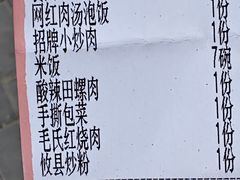 网红肉汤泡饭 1份
招牌小炒肉 1份
米饭 7碗
酸辣田螺肉 1份
手撕包菜 1份
毛氏红烧肉 1份
攸县炒粉 1份